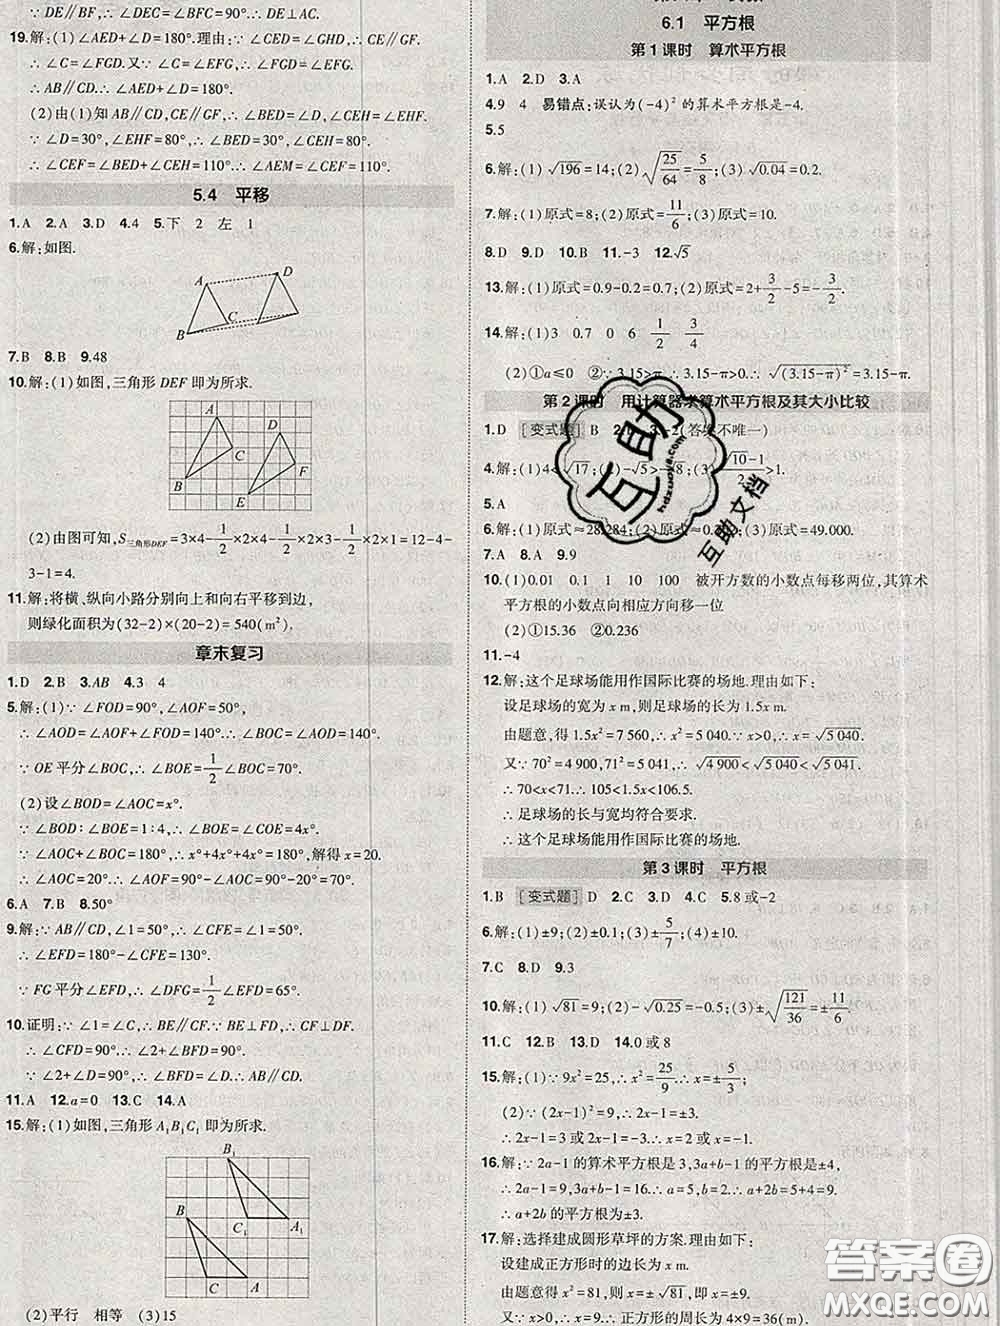 ∵ DE∥BF,∴ ∠DEC=∠BFC=90°.∴ DE⊥AC.
19.解:(1)∠AED+∠D=180°.理由:∵ ∠CED=∠GHD,∴ CE∥GF.
∴ ∠C=∠FGD.又∵ ∠C=∠EFG,∴ ∠FGD=∠EFG.
∴ AB∥CD.∴ ∠AED+∠D=180°.
(2)由(1)知AB∥CD,CE∥GF,∴ ∠BED=∠D,∠CEH=∠EHF.
∵ ∠D=30°,∠EHF=80°,∴ ∠BED=30°,∠CEH=80°.
∴ ∠CEF=∠BED+∠CEH=110°.∴ ∠AEM=∠CEF=110°.
5.4 平移
1.A 2.A 3.D 4.4 5.下 2 左 1
6.解:如图.
A D
C
B
7.B 8.B 9.48
10.解:(1)如图,三角形 DEF 即为所求.
A
D
C
F
B
E
(2)由图可知,S三角形DEF=3×4-1/2×2×4-1/2×2×3-1/2×2×1=12-4-
3-1=4.
11.解:将横、纵向小路分别向上和向右平移到边,
则绿化面积为(32-2)×(20-2)=540(m²).
章末复习
1.D 2.B 3.AB 4.3 4
5.解:(1)∵ ∠FOD=90°,∠AOF=50°,
∴ ∠AOD=∠AOF+∠FOD=140°.∴ ∠BOC=∠AOD=140°.
∵ OE平分∠BOC,∴ ∠BOE=1/2∠BOC=70°.
(2)设∠BOD=∠AOC=x°.
∵ ∠BOD∶∠BOE=1∶4,∴ ∠BOE=∠COE=4x°.
∵ ∠AOC+∠BOC=180°,∴ x°+4x°+4x°=180°,解得x=20.
∴ ∠AOC=20°.∴ ∠AOE=∠AOC+∠COE=100°.
6.A 7.B 8.50°
9.解:∵ AB∥CD,∠1=50°,∴ ∠CFE=∠1=50°.
∴ ∠EFD=180°-∠CFE=130°.
∵ FG平分∠EFD,∴ ∠DFG=1/2∠EFD=65°.
10.证明:∵ ∠1=∠C,∴ BE∥CF.∵ BE⊥FD,∴ CF⊥DF.
∴ ∠CFD=90°.∴ ∠2+∠BFD=90°.
∵ ∠2+∠D=90°,∴ ∠BFD=∠D.∴ AB∥CD.
11.A 12.a=0 13.C 14.A
15.解:(1)如图,三角形A₁B₁C₁即为所求.
B₁
B
C₁ A₁
C A
(2)平行 相等 (3)15
6.1 平方根
第1课时 算术平方根
1.A 2.D 3.A
4.9 4 易错点:误认为(-4)²的算术平方根是-4.
5.5
6.解:(1)√196=14;(2)√(25/64)=5/8;(3)√0.04=0.2.
7.解:(1)原式=8;(2)原式=11/6;(3)原式=10.
8.D 9.D 10.B 11.-3 12.√5
13.解:(1)原式=0.9-0.2=0.7;(2)原式=2+3/2-5=-3/2.
14.解:(1)3 0.7 0 6 1/2 3/4
(2)①a≤0 ②∵ 3.15>π,∴ 3.15-π>0.∴ √(3.15-π)²=3.15-π.
第2课时 用计算器求算术平方根及其大小比较
1.D [变式题] B 2. 3. 2(答案不唯一)
4.解:(1)4<√17;(2)-√5>-√8;(3)(√10-1)/ >1.
5.A
6.解:(1)原式≈28.284;(2)原式≈0. (3)原式≈49.000.
7.A 8.A 9.9
10.(1)0.01 0.1 1 10 100 被开方数的小数点每移两位,其算术
平方根的小数点向相应方向移一位
(2)①15.36 ②0.236
11.-4
12.解:这个足球场能用作国际比赛的场地.理由如下:
设足球场的宽为x m,则足球场的长为1.5x m.
由题意,得1.5x²=7 560,∴ x²=5 040.∵ x>0,∴ x=√5 040.
又∵ 70²=4 900,71²=5 041,∴ √4 900<√5 040<√5 041.
∴ 70<x<71.∴ 105<1.5x<106.5.
∴ 足球场的长与宽均符合要求.
∴ 这个足球场能用作国际比赛的场地.
第3课时 平方根
1.B [变式题] D 2.C 3.D 4.C 5.8或-2
6.解:(1)±9;(2)±0.1;(3)±5/7;(4)±10.
7.C 8.D 9.3
10.解:(1)√81=9;(2)-√0.25=-0.5;(3)±√(121/36)=±11/6.
11.C 12.B 13.D 14.0或8
15.解:(1)∵ 9x²=25,∴ x²=25/9,∴ x=±5/3.
(2)∵ (2x-1)²=9,∴ 2x-1=±3.
∴ 2x-1=3或2x-1=-3.∴ x=2或x=-1.
16.解:∵ 2a-1的算术平方根是3,3a+b-1的平方根是±4,
∴ 2a-1=9,3a+b-1=16.∴ a=5,b=2.∴ a+2b=9.
∴ a+2b的平方根为±3.
17.解:选择建成圆形草坪的方案.理由如下:
设建成正方形时的边长为x m,
由题意得x²=81,∴ x=±√81=±9.
又∵ x>0,∴ x=9.∴ 正方形的周长为4×9=36(m).
互助
hdzuoye.com
互助文档
答案圈
MXQE.COM